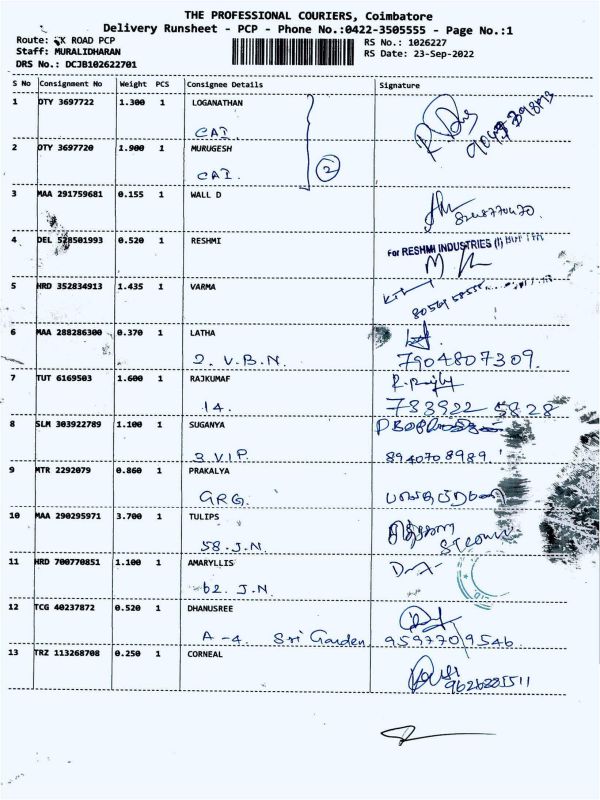 THE PROFESSIONAL COURIERS, Coimbatore
Delivery Runsheet - PCP - Phone No.:0422-3505555 - Page No.:1
Route: K ROAD PCP
RS No.: 1026227
Staff: MURALIDHARAN
RS Date: 23-Sep-2022
DRS No.: DCJB102622701
S No Consignment No Weight PCS Consignee Details Signature
1 OTY 3697722 1.300 1 LOGANATHAN
CAI
2 OTY 3697720 1.900 1 MURUGESH
CAI.
2
3 MAA 291759681 0.155 1 WALL D
4 DEL 528501993 0.520 1 RESHMI
For RESHMI INDUSTRIES (I)
5 HRD 352834913 1.435 1 VARMA
6 MAA 288286300 0.370 1 LATHA
2. V.B.N. 7904807309.
7 TUT 6169503 1.600 1 RAJKUMAF
14. 733922 5828
8 SLM 303922789 1.100 1 SUGANYA
3.V.I.P. 8940708989.
9 MTR 2292079 0.860 1 PRAKALYA
GRG.
10 MAA 290295971 3.700 1 TULIPS
58.J.N.
11 HRD 700770851 1.100 1 AMARYLLIS
62. J.N.
12 TCG 40237872 0.520 1 DHANUSREE
A-4. Sri Garden 9597709546
13 TRZ 113268708 0.250 1 CORNEAL